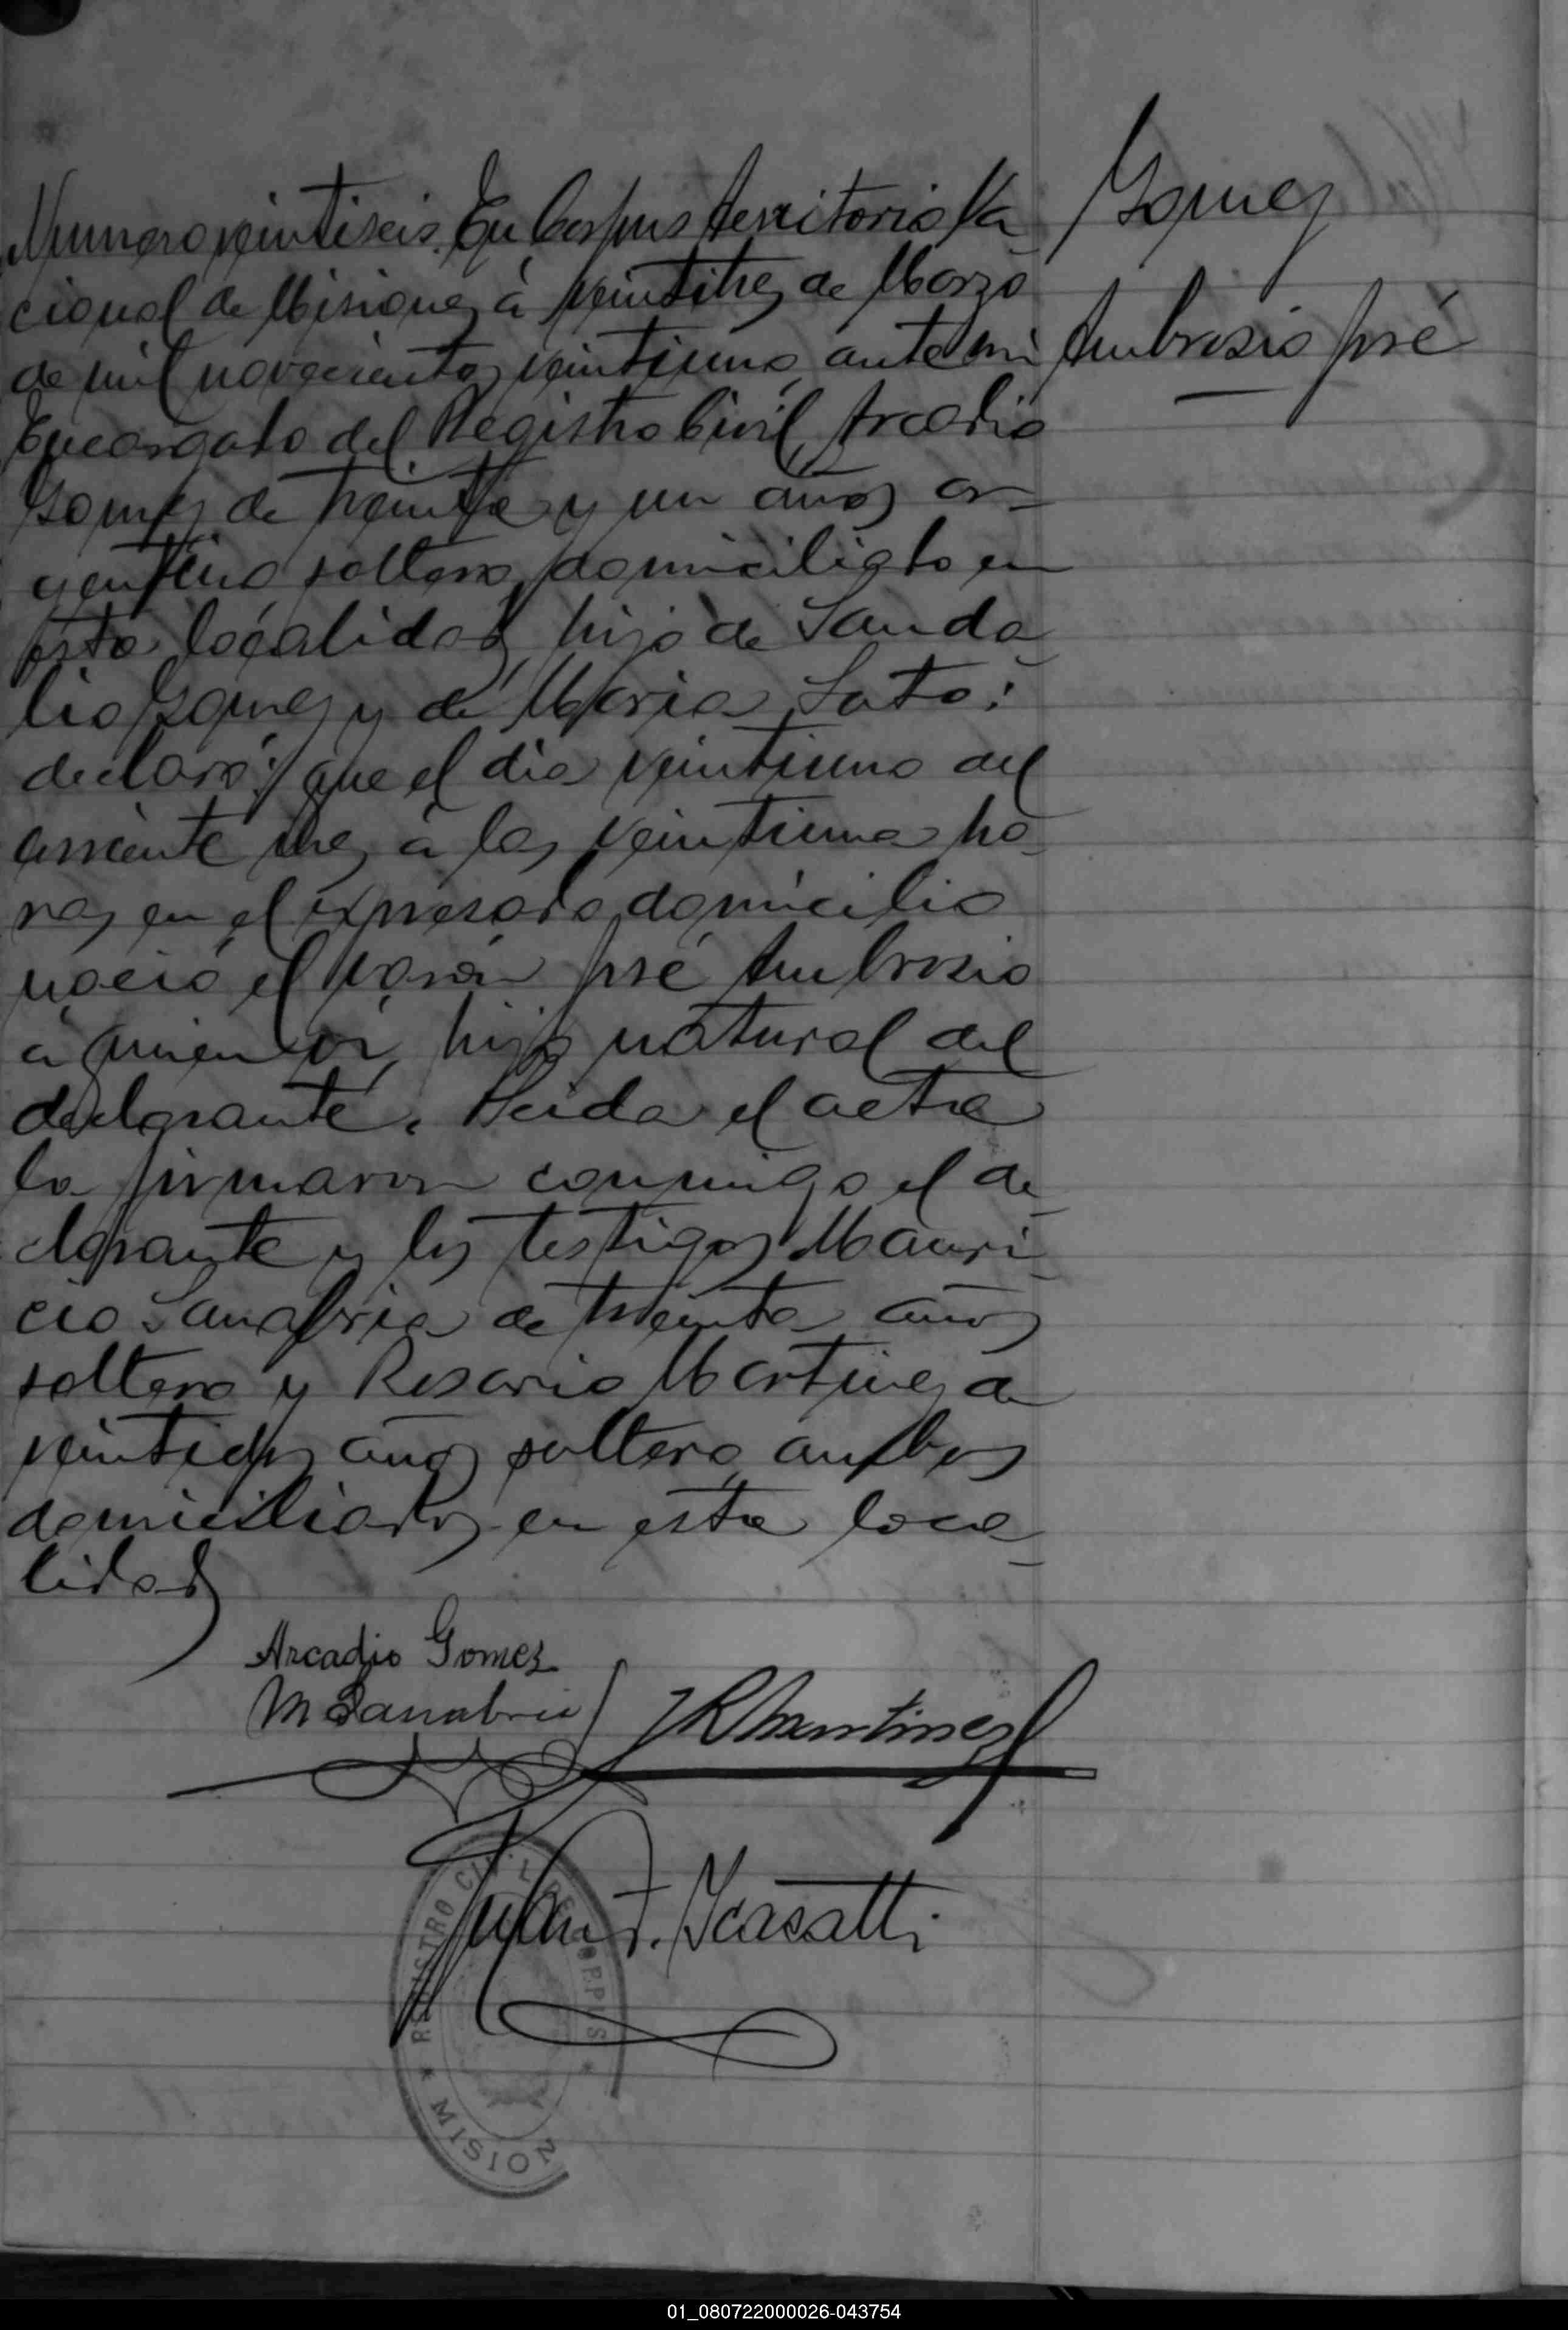 Gomez
Ambrosio José
Numero veintiseis. En Corpus territorio Na
cional de Misiones, á veintitres de Marzo
de mil novecientos veintiuno, ante mi
Encargado del Registro Civil, Arcadio
Gomez de treinta y un años ar-
gentino soltero, domiciliado en
esta localidad, hijo de Sanda
lio Gomez y de Maria Soto;
declaró: que el dia veintiuno del
corriente mes, á las veintiuna ho
ras en el expresado domicilio
nació el varon José Ambrosio
á quien vi, hijo natural del
declarante. Leida el acta
la firmaron conmigo el de
clarante y los testigos Mauri
cio Sanabria de treinta años
soltero y Rosario Martinez de
veintidos años soltero, ambos
domiciliados en esta loca
lidad
Arcadio Gomez
M Sanabria
J R Martinez
Juan F. Scasatti
REGISTRO CIVIL DE CORPUS
MISION
01_080722000026-043754